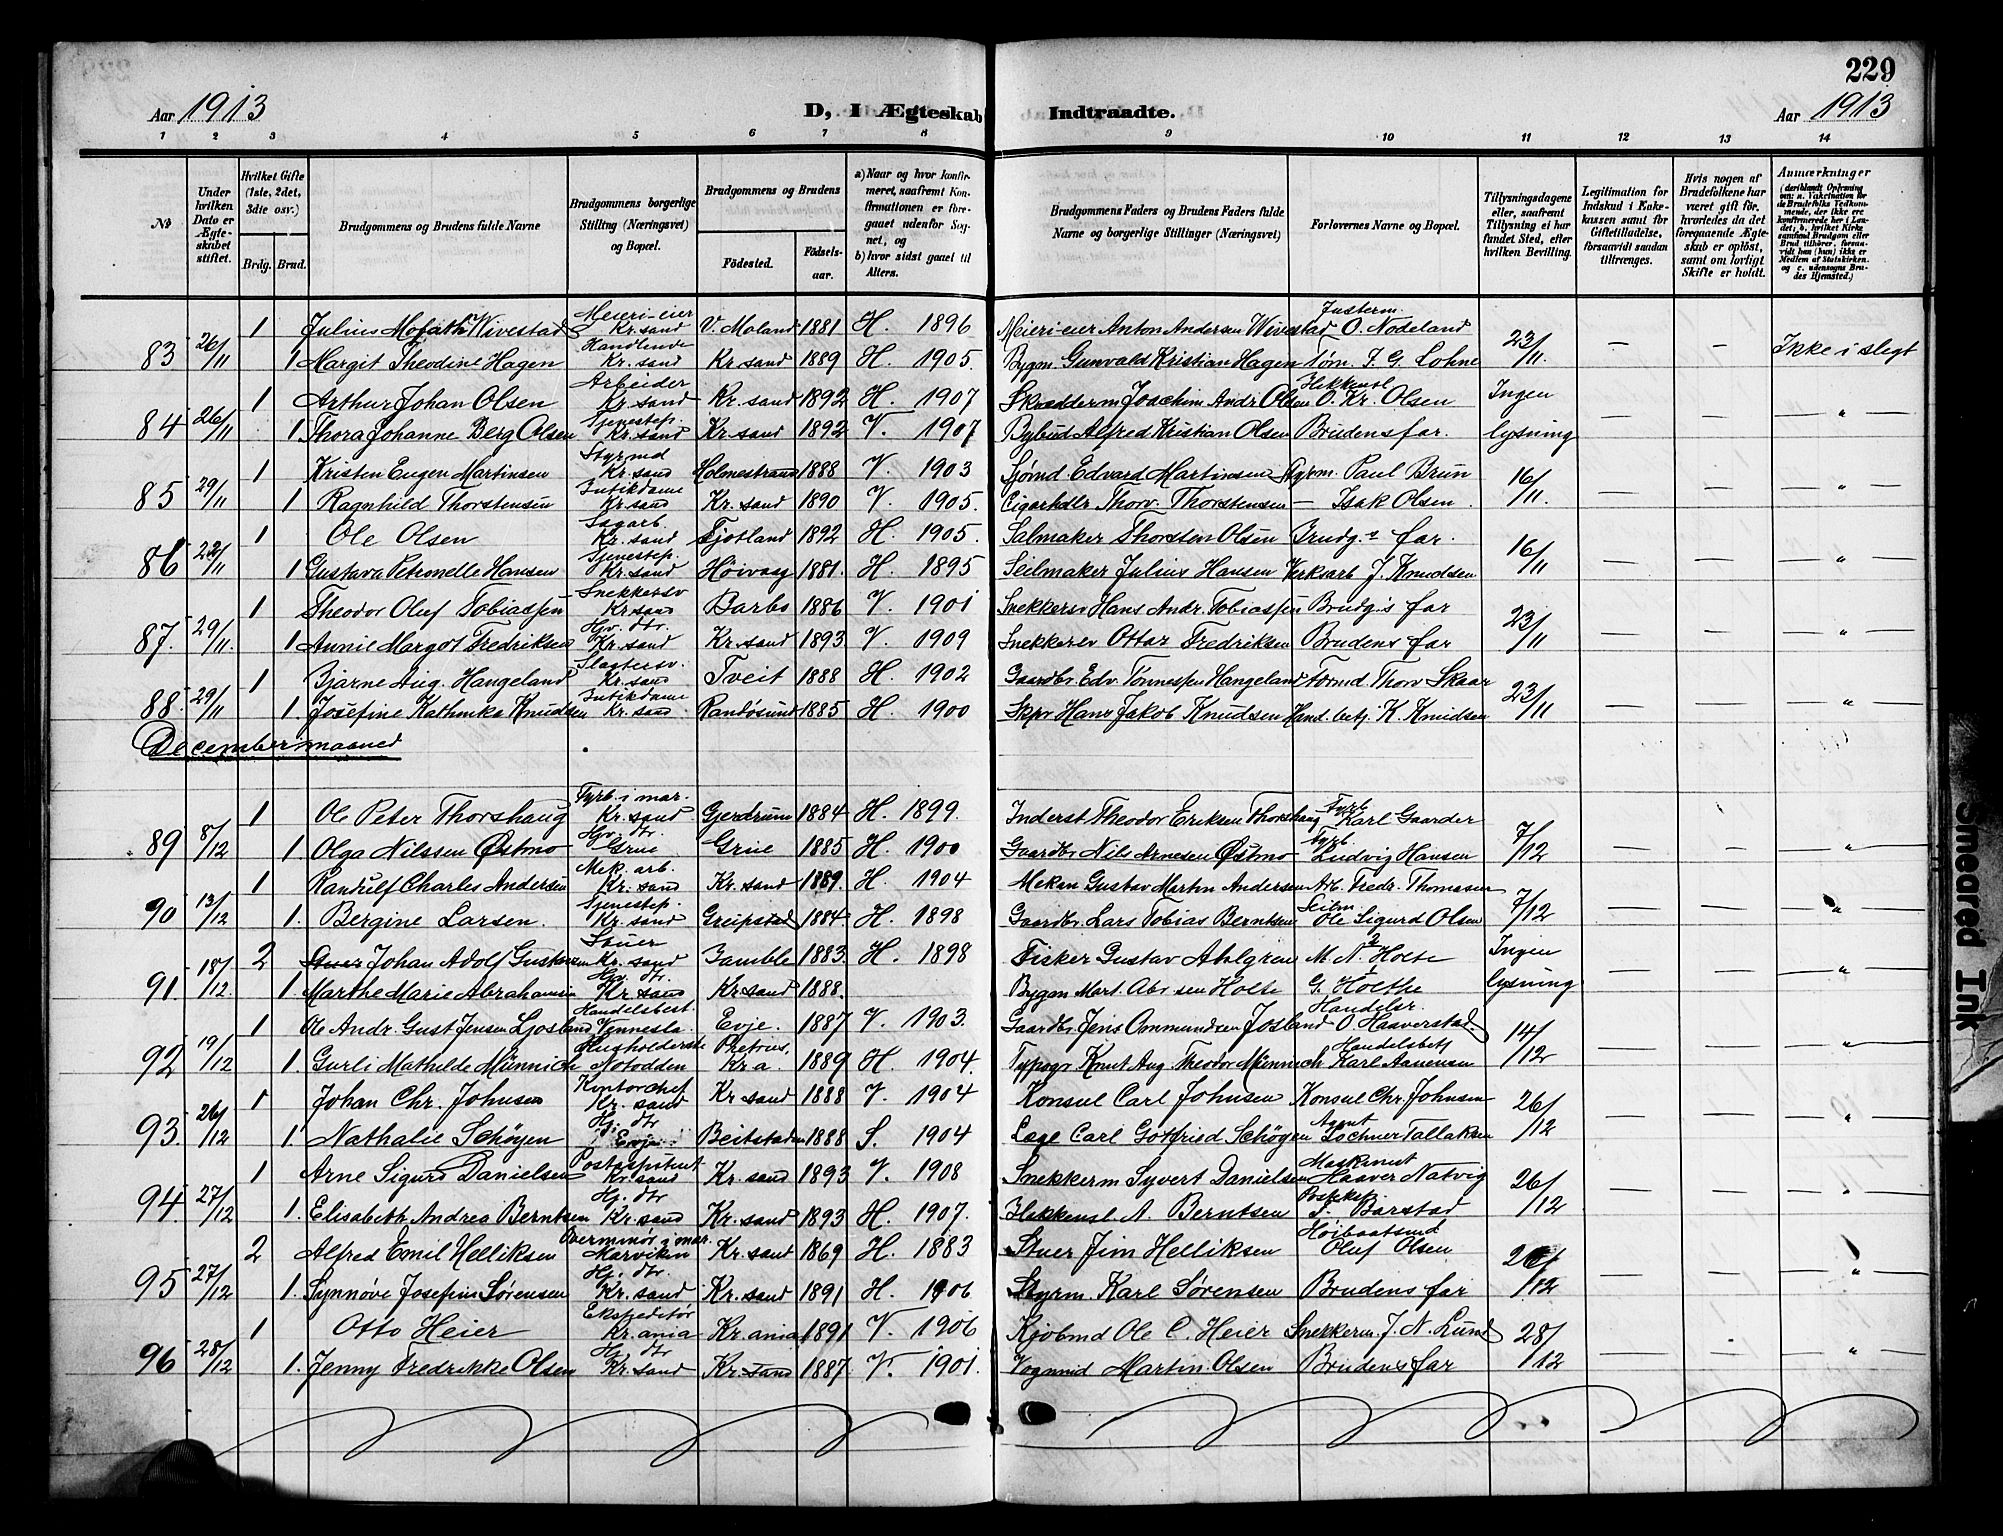 229
Aar 1913 D, I Ægteskab Indtraadte. Aar 1913
1 2 3 4 5 6 7 8 9 10 11 12 13 14
№
Under hvilken Dato er Ægteskabet stiftet.
Hvilket Gifte (1ste, 2det, 3dte osv.)
Brdg. Brud.
Brudgommens og Brudens fulde Navne
Brudgommens borgerlige Stilling (Næringsvei) og Bopæl.
Brudgommens og Brudens
Fødested. Fødselsaar.
a) Naar og hvor konfirmeret, saafremt Konfirmationen er foregaaet udenfor Sognet, og
b) hvor sidst gaaet til Alters.
Brudgommens Faders og Brudens Faders fulde Navne og borgerlige Stillinger (Næringsvei)
Forlovernes Navne og Bopæl.
Tillysningsdagene eller, saafremt Tillysning ei har fundet Sted, efter hvilken Bevilling.
Legitimation for Indskud i Enkekassen samt for Giftetilladelse, forsaavidt saadan tiltrænges.
Hvis nogen af Brudefolkene har været gift før, hvorledes da det foregaaende Ægteskab er opløst, samt om lovligt Skifte er holdt.
Anmærkninger
1 Julius Wivestad Meierieier Kr.sand V. Moland 1881 H. 1896 Meierieier Anton Andersen Wivestad Justerm. O. Nodeland
83 26/11 1 Margit Theodine Hagen Handlende Kr. sand Kr. sand 1889 H. 1905. Bygm. Gunvald Kristian Hagen Tøm. J. G. Lohne 23/11. — — Ikke i slegt
1 Arthur Johan Olsen Arbeider Kr. sand Kr. sand 1892 H. 1907 Skrædderm Joachim Andr Olsen O. Kr. Olsen Ingen
84 26/11 1. Thora Johanne Berg Olsen Tjenestep. Kr. sand Kr. sand 1892 V. 1907 Bybud Alfred Kristian Olsen Brudens far. lysning — — "
1 Kristen Eugen Martinsen Styrmd Kr. sand Holmestrand 1888 V. 1903 Sjømd. Edvard Martinsen Paul Brun
85 29/11 1 Ragnhild Thorstensen Butikdame Kr. sand Kr. sand 1890 V. 1905. Cigarhdlr Thorv. Thorstensen — Isak Olsen 16/11. — — "
1 Ole Olsen Sagarb. Kr. sand Fjotland 1892 H. 1905. Salmaker Thorsten Olsen Brudg.s far.
86 22/11 1 Gustava Petronelle Hansen Tjenestep. Kr. sand Høivaag 1881. H. 1895 Seilmaker Julius Hansen Verksarb J. Knudsen 16/11 — — "
1 Theodor Oluf Tobiassen Snekkersv Kr. sand Barbo 1886 V. 1901 Snekkersv Hans Andr. Tobiassen Brudg.s far
87. 29/11. 1 Annie Margot Fredriksen Hv. dtr. Kr. sand Kr. sand 1893. V. 1909 Snekkersv Ottar Fredriksen Brudens far 23/11 — — "
1 Bjarne Aug. Hangeland Slagtersv. Kr. sand Tveit 1888 H. 1902 Gaardbr. Edv. Tønnessen Hangeland Thorv Skaar
88 29/11 1. Josefine Kathinka Knudsen Butikdame Kr. sand. Randøsund 1885 H. 1900 Skpr Hans Jakob Knudsen Hand.betj. K. Knudsen 23/11 — — "
Decembermaaned
1 Ole Peter Thorshaug Fyrb. i mar. Kr. sand Gjerdrum 1884 H. 1899. Inderst Theodor Eriksen Thorshaug Fyrb. Karl Gaarder
89 8/12 1. Olga Nilssen Østmo Hv. dtr. Grue Grue 1885 H. 1900 Gaardbr Nils Arnesen Østmo Fyrb. Ludvig Hansen 7/12 — — "
1 Randulf Charles Andersen Mek. arb. Kr. sand Kr. sand 1889. H. 1904 Mekan Gustav Martin Andersen Arb. Fredr. Thomasen
90 13/12 1. Bergine Larsen. Tjenestep. Kr. sand Greipstad 1884. H. 1898 Gaardbr. Lars Tobias Berntsen Seilm. Ole Sigurd Olsen 7/12 — — "
2 Johan Adolf Gustavsen Stuer Kr. sand Bamble 1883. H. 1898 Fisker Gustav Ahlgren M. N. Holte Ingen
91. 18/12. 1. Marthe Marie Abrahamsen Hv. dtr. Kr. sand Kr. sand 1888. Bygm Mart. Abr sen Holte G. Holthe lysning — — "
1 Ole Andr. Gust Jensen Ljosland Handelsbest. Vennesla. Evje. 1887 V. 1903. Gaardbr Jens Ommundsen Josland Handelsr. O. Haaverstad
92 19/12 1. Gurli Mathilde Münnich Husholderske Notodden Kr.a. 1889 H. 1904. Typogr Knut Aug. Theodor Münnich Handelsbetj Karl Aanensen 14/12 — — "
1 Johan Chr. Johnsen Kontorchef Kr. sand Kr. sand 1888 V. 1904 Konsul Carl Johnsen Konsul Chr. Johnsen
93. 26/12 1. Nathalie Schøyen Hj. dtr Evje Beitstaden 1888 S. 1904 Læge Carl Gotfried Schøyen Agent Lochner Tallaksen 26/12 — — "
1 Arne Sigurd Danielsen Kr. sand Kr. sand 1893 V. 1908 Snekkerm Syvert Danielsen Maskinist Haaver Natvig
94. 27/12 1. Elisabeth Andrea Berntsen Hj. dtr Kr. sand Kr. sand 1893 H. 1907. Blikkensl A. Berntsen Barstad 26/12 — — "
2 Alfred Emil Helliksen Overminør i mar. Marviken Kr. sand 1869 H. 1883 Stuer Jim Helliksen Høibaatsmd Oluf Olsen
95 27/12 1. Synnøve Josefine Sørensen Hj. dtr. Kr. sand Kr. sand 1891 H. 1906 Styrm. Karl Sørensen Brudens far 26/12 — — "
1 Otto Heier Ekspeditør Kr.ania Kr.ania 1891 V. 1906 Kjøbmd Ole C. Heier Snekkerm. J. N. Lund
96 28/12 1. Jenny Fredrikke Olsen Hj. dtr Kr. sand Kr. sand 1887. V. 1901. Vognmd Martin Olsen Brudens far 28/12 — — "
Smeared Ink